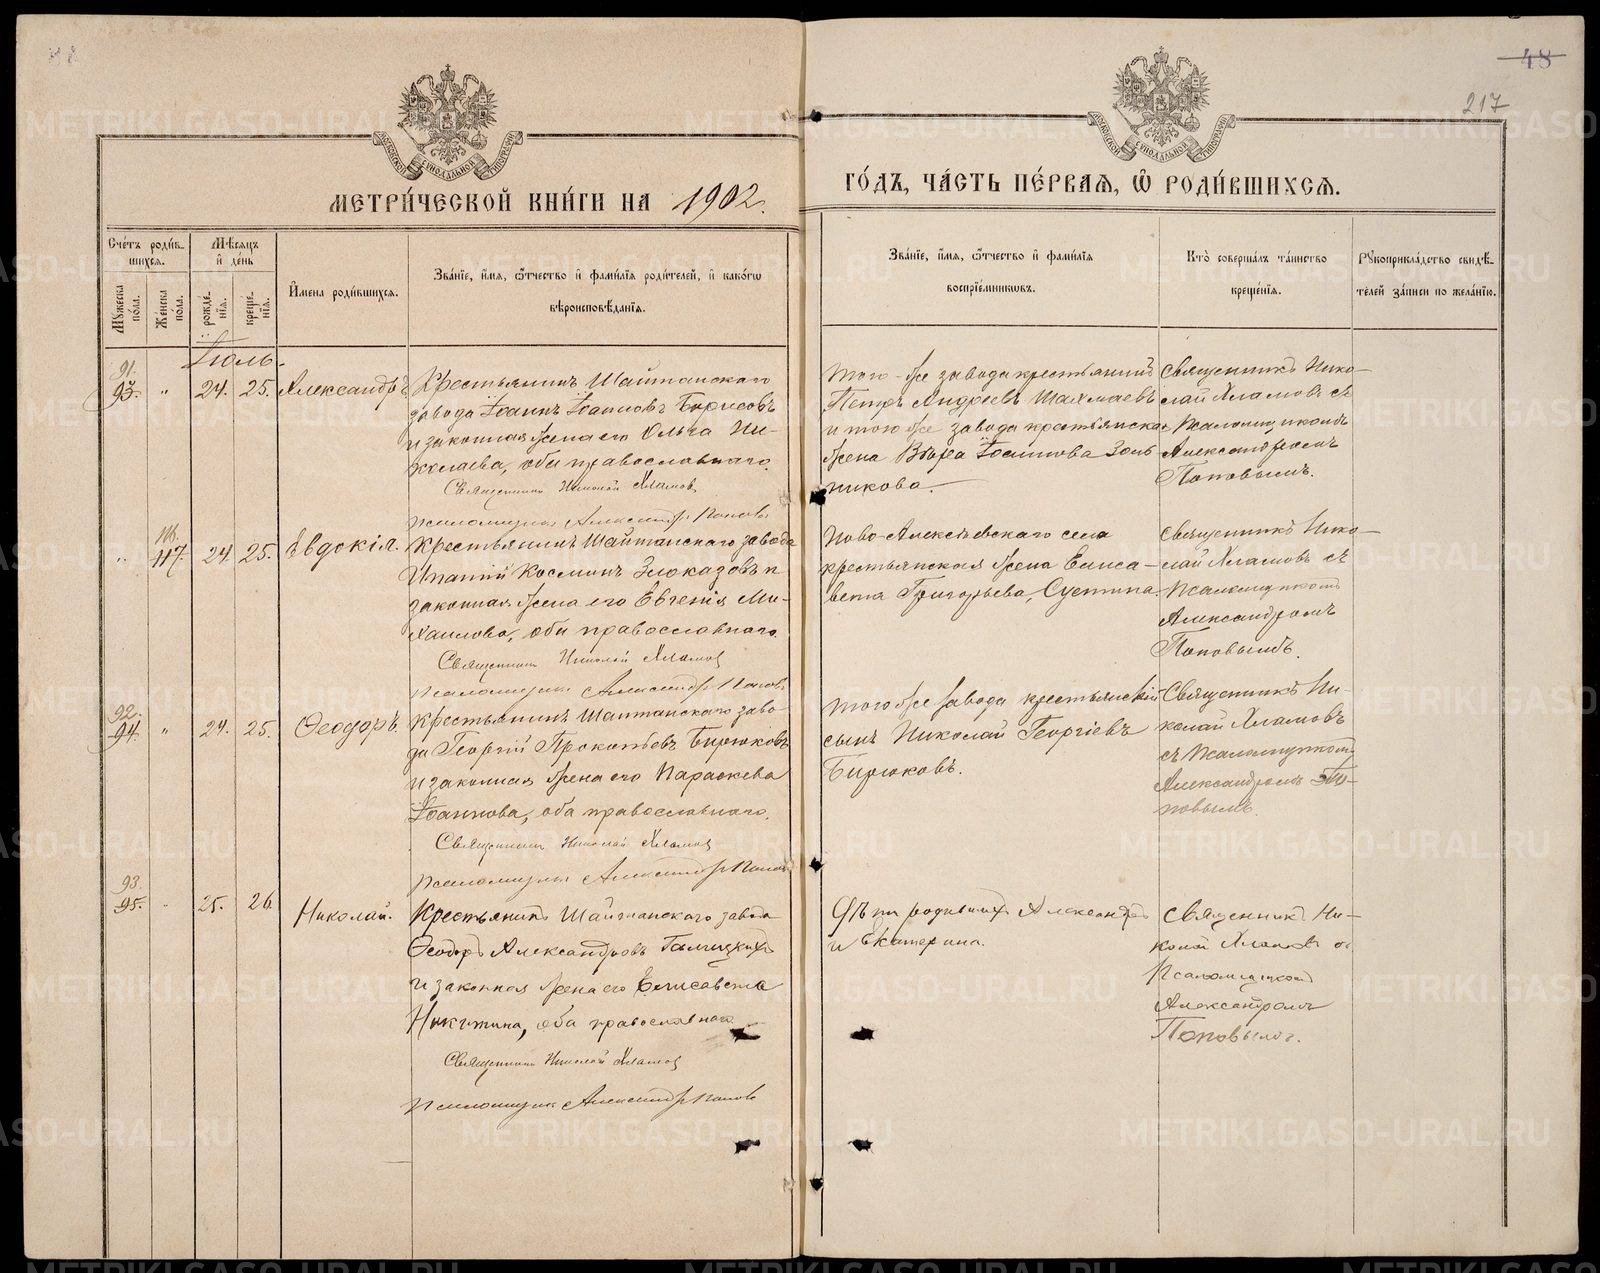 48
217
МЕТРИ́ЧЕСКОЙ КНИ́ГИ НА 1902.
ГО́ДЪ, ЧА́СТЬ ПЕ́РВАЯ, Ѿ РОДИ́ВШИХСЯ.
Сче́тъ роди́в-
шихся.
Мꙋжеска по́ла.
Же́нска по́ла.
Мѣсяцъ и де́нь
рожде́-нїя.
креще́-нїя.
Имена роди́вшихся.
Зва́нїе, и́мя, ѻ҆́тчество и҆ фами́лїя роди́телей, и҆ како́гѡ
вѣроисповѣ́данїя.
Зва́нїе, и́мя, ѻ҆́тчество и҆ фами́лїя
воспрїе́мниковъ.
Кто̀ соверша́лъ та́инство
креще́нїя.
Рꙋкоприкла́дство свидѣ́-
телей за́писи по жела́нїю.
Іюль.
91.
93. " 24. 25. Александръ
Крестьянинъ Шайтанскаго
завода Іоаннъ Іоанновъ Борисовъ
и законная жена его Ольга Ни-
колаева, оба православнаго.
Священникъ Николай Хламовъ
Псаломщикъ Александръ Поповъ
Того-же завода крестьянинъ
Петръ Андреевъ Шахмаевъ
и того же завода крестьянская
жена Вѣра Іоаннова Золь
никова.
Священникъ Нико-
лай Хламовъ съ
Псаломщикомъ
Александромъ
Поповымъ.
116.
" 117. 24. 25. Евдокія.
Крестьянинъ Шайтанскаго завода
Ипатій Косминъ Злоказовъ и
законная жена его Евгенія Ми-
хаилова, оба православнаго.
Священникъ Николай Хламовъ
Псаломщикъ Александръ Поповъ
Ново-Алексѣевскаго села
крестьянская жена Елиса-
вета Григорьева,
Священникъ Нико-
лай Хламовъ съ
Псаломщикомъ
Александромъ
Поповымъ.
92.
94. " 24. 25. Ѳеодоръ.
Крестьянинъ Шайтанскаго заво-
да Георгій Прокопьевъ Бирюковъ
и законная жена его Параскева
Іоаннова, оба православнаго.
Священникъ Николай Хламовъ
Псаломщикъ Александръ Поповъ
Того же завода крестьянскій
сынъ Николай Георгіевъ
Бирюковъ.
Священникъ Ни-
колай Хламовъ
съ Псаломщикомъ
Александромъ По-
повымъ.
93.
95. " 25. 26. Николай.
Крестьянинъ Шайтанскаго завода
Ѳеодоръ Александровъ Галицкихъ
и законная жена его Елисавета
Никитина, оба православнаго.
Священникъ Николай Хламовъ
Псаломщикъ Александръ Поповъ
Дѣти родившихъ Александръ
и Екатерина.
Священникъ Ни-
колай Хламовъ съ
Псаломщикомъ
Александромъ
Поповымъ.
METRIKI.GASO-URAL.RU